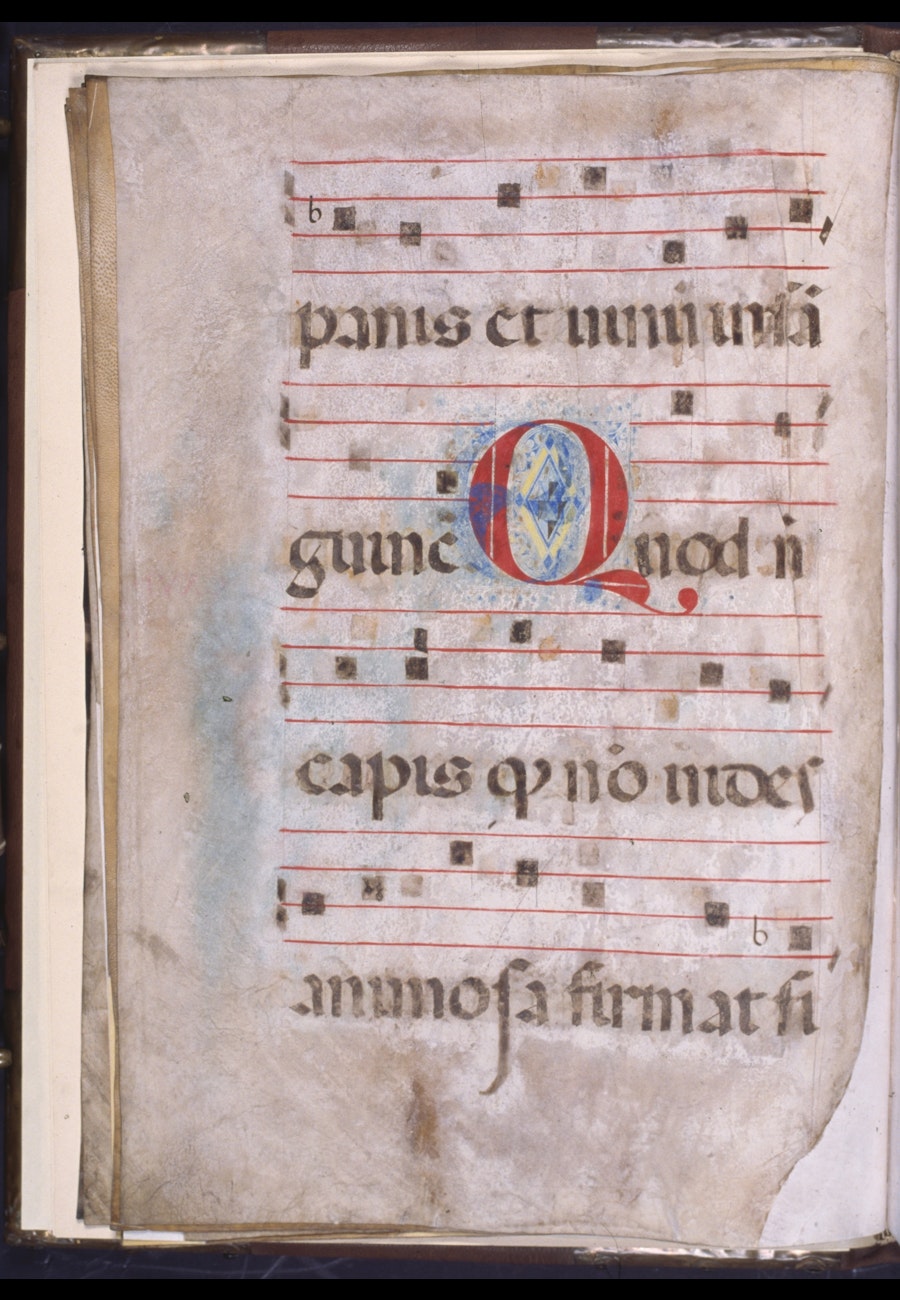 panis et uinũ in sã
guinẽ Quod ñ
capis qɸ nõ uides
animosa firmat fi